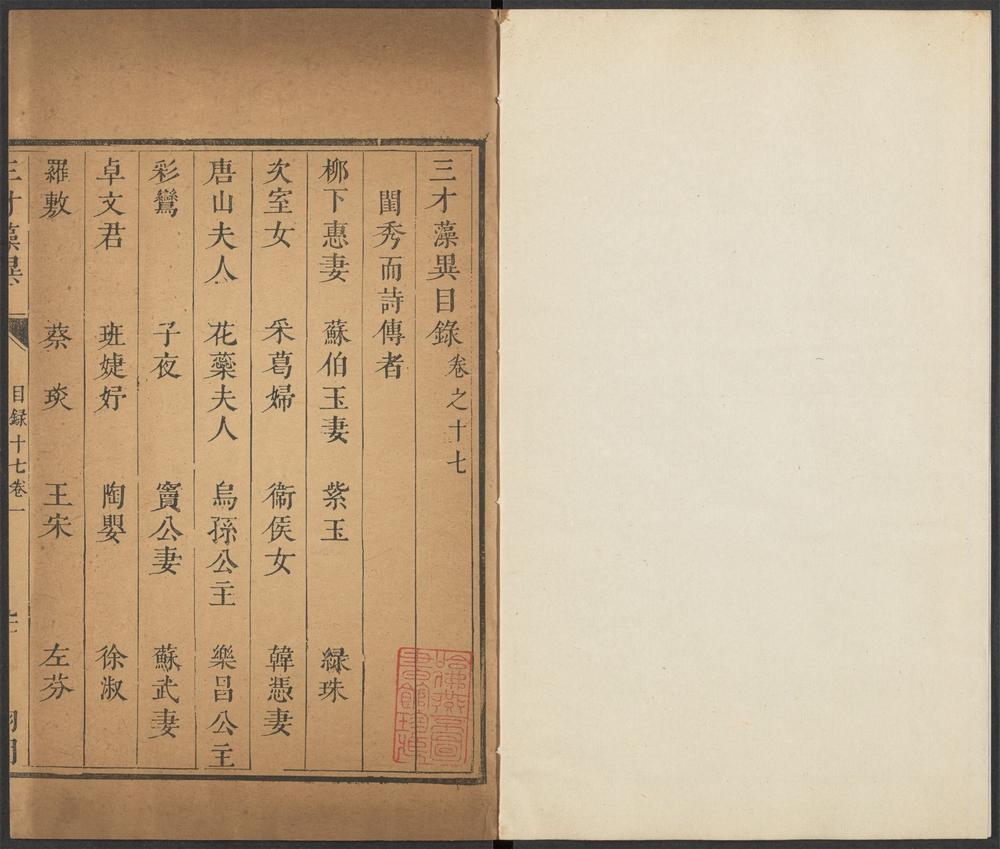 三才藻異目錄 卷之十七
閨秀而詩傳者
柳下惠妻 蘇伯玉妻 紫玉 緑珠
次室女 采葛婦 衞侯女 韓憑妻
唐山夫人 花蘂夫人 烏孫公主 樂昌公主
彩鸞 子夜 竇公妻 蘇武妻
卓文君 班婕妤 陶嬰 徐淑
羅敷 蔡琰 王宋 左芬
三才藻異 目録十七卷一
哈佛燕京圖書館珍藏